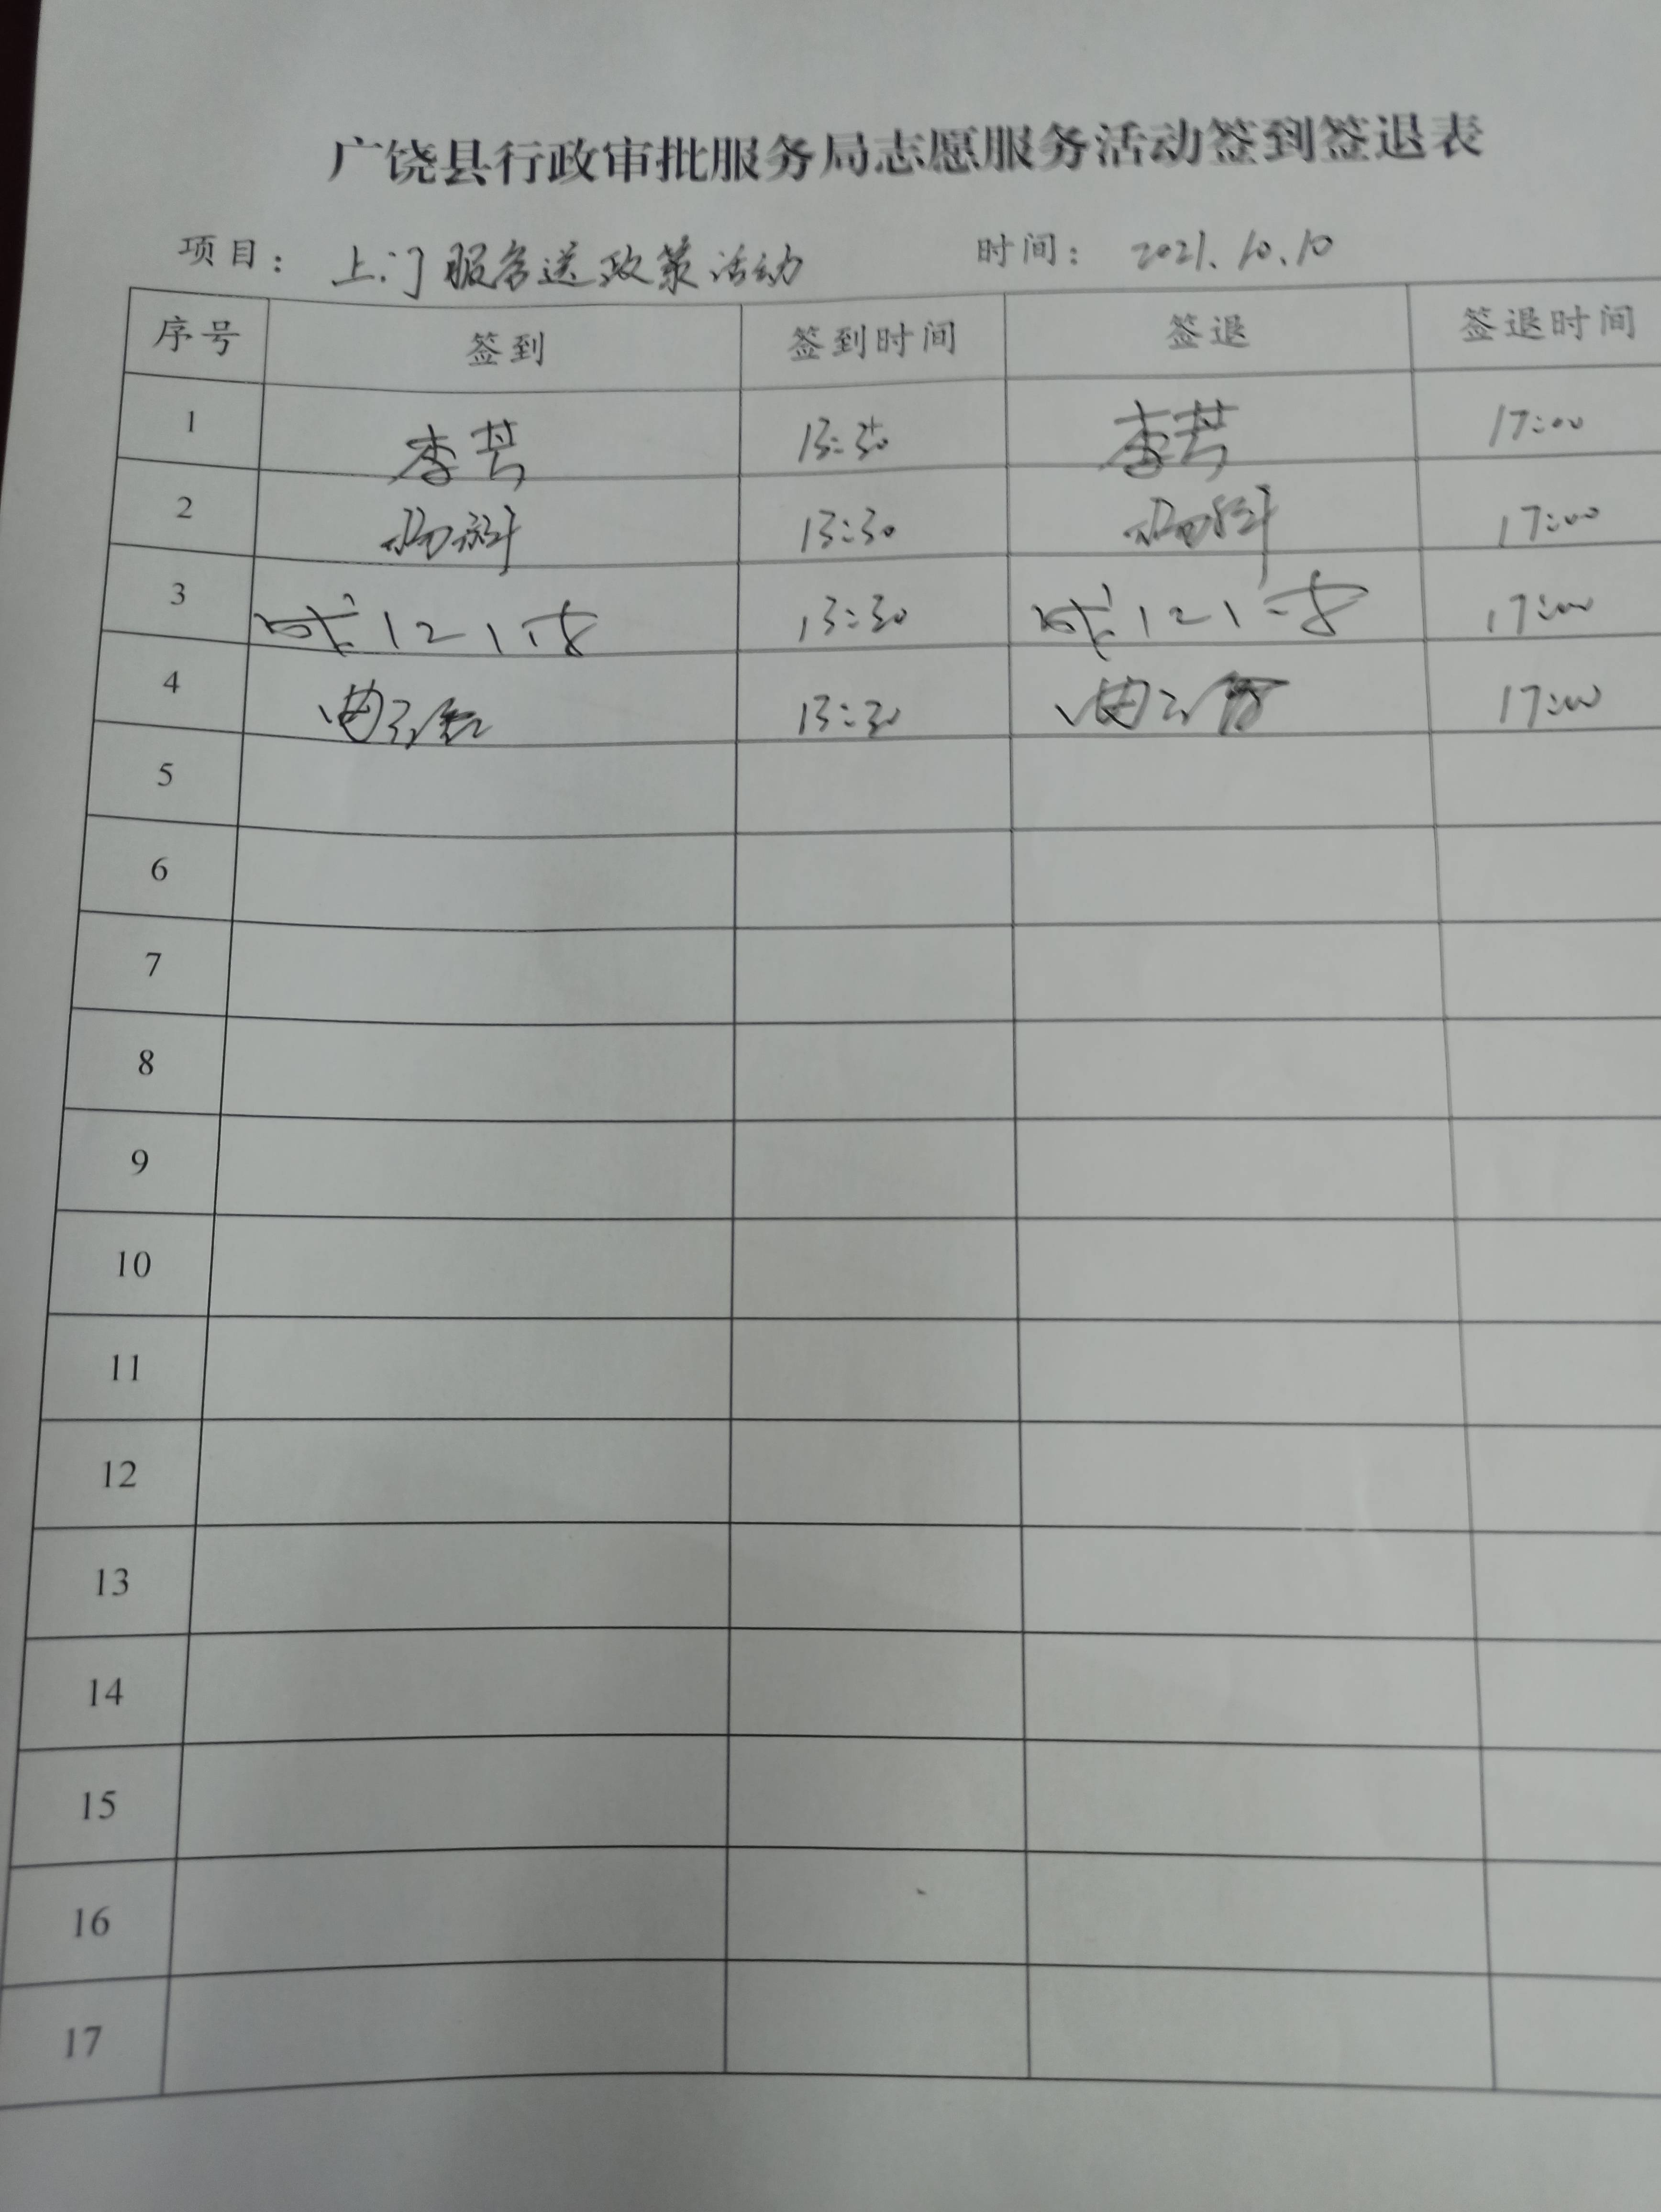 广饶县行政审批服务局志愿服务活动签到签退表
项目： 上门服务送政策活动 时间： 2021.10.10
序号 签到 签到时间 签退 签退时间
1 13:30 17:00
2 13:30 17:00
3 13:30 17:00
4 13:30 17:00
5
6
7
8
9
10
11
12
13
14
15
16
17